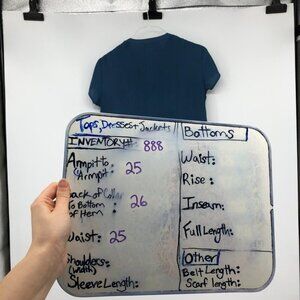 Tops, Dresses + Jackets
INVENTORY# 888
Armpit to
Armpit: 25
Back of Collar
To Bottom : 26
of Hem
Waist: 25
Shoulders:
(width)
Sleeve Length:
Bottoms
Waist:
Rise:
Inseam:
Full Length:
Other
Belt Length:
Scarf length: